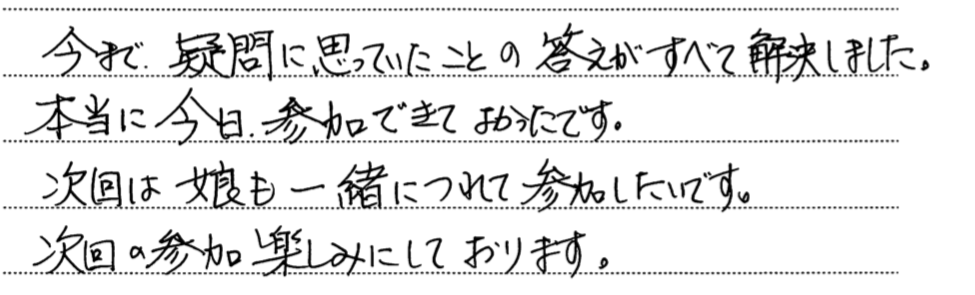 今まで、疑問に思っていたことの答えがすべて解決しました。
本当に今日、参加できてよかったです。
次回は娘も一緒につれて参加したいです。
次回の参加楽しみにしております。